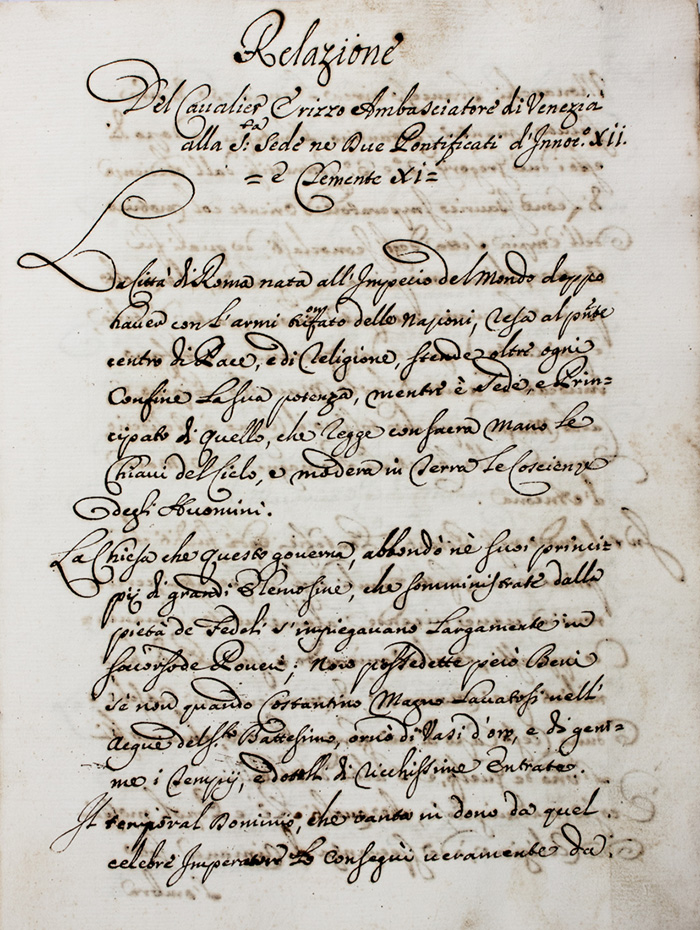 Relazione
Del Caualier Erizzo Ambasciatore di Venezia
alla S.ta Sede ne Due Pontificati d'Innoc.o XII.
= e Clemente XI =
La Città di Roma nata all'Imperio del Mondo doppo
hauer con l'armi trionfato delle Nazioni, resa al pnte
centro di Pace, e di Religione, stende oltre ogni
Confine La sua potenza, mentre è Sede, e Prin=
cipato di quello, che regge con sacra Mano Le
Chiaui del Cielo, e modera in terra Le Coscienze
degli Huomini.
La Chiesa che questo gouerna, abbondò nè suoi princi=
pij di grandi Elemosine, che somministrate dalla
pietà de Fedeli s'impiegauano Largamente in
soccorso de Poueri; Non possedette però Beni
se non quando Costantino Magno Lauatosi nell'
Acque del S.to Battesimo, ornò di Vasi d'oro, e di gem=
me i Tempij, e dotolli di ricchissime Entrate.
Il temporal Dominio, che vanta in dono da quel
celebre Imperatore Lo conseguì ueramente da